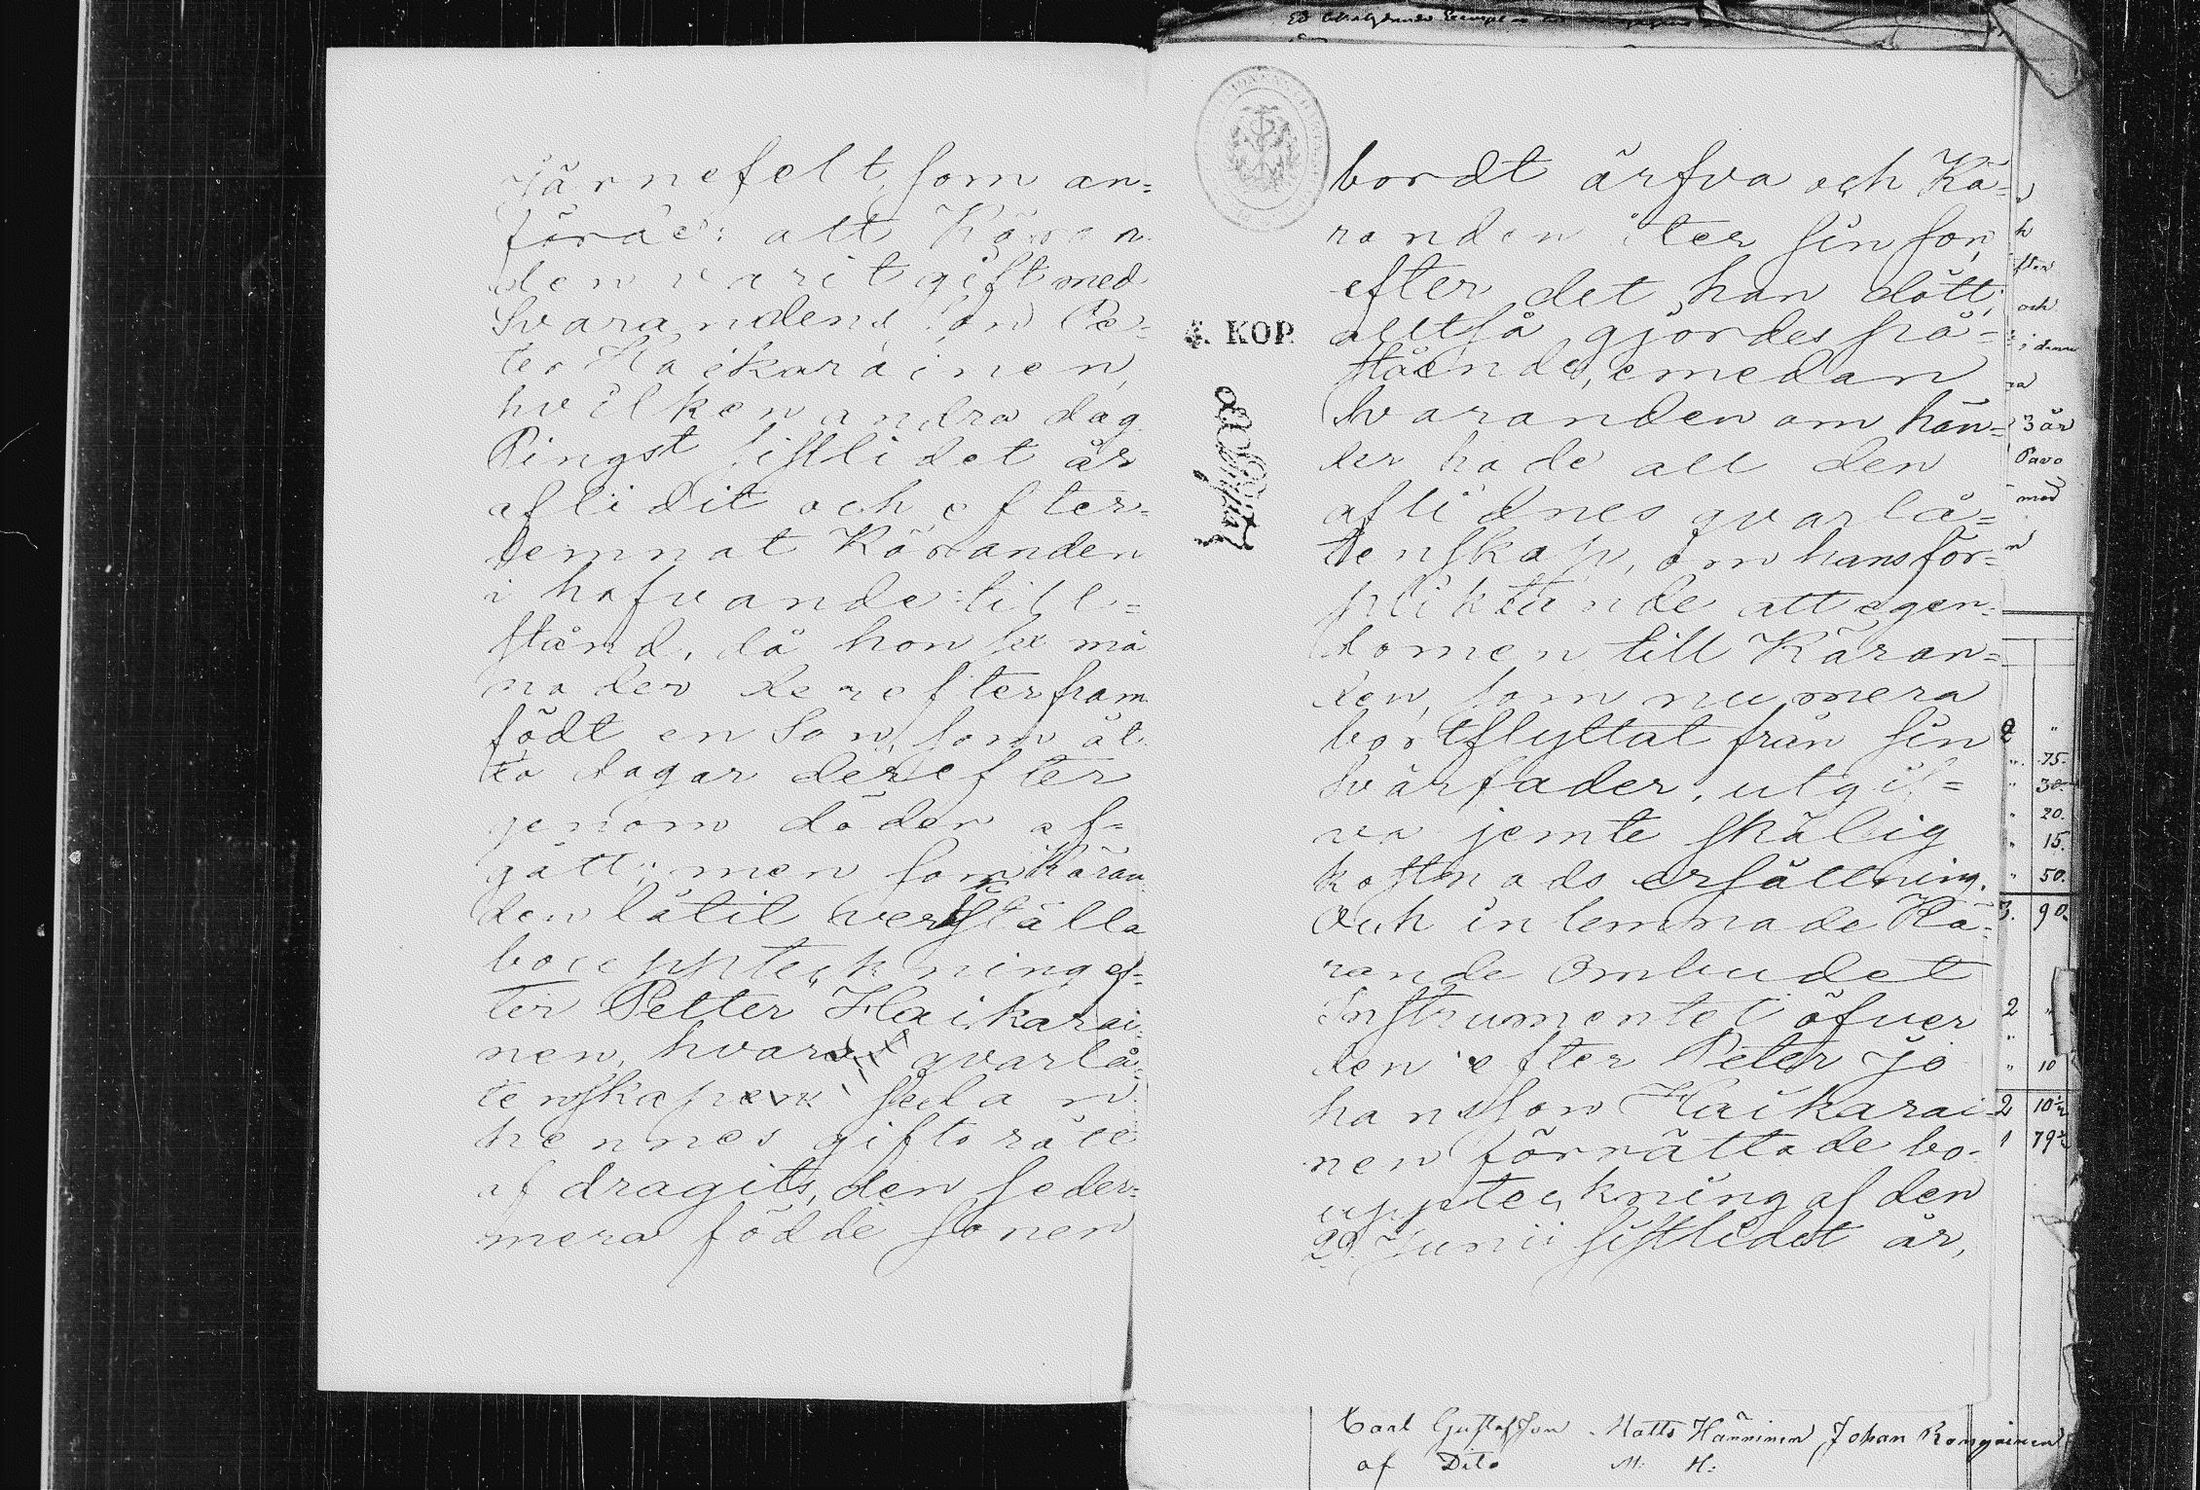 Järnefelt, som an=
förde: att Käran
den varit gift med
Svarandens son Pe=
ter Haikarainen,
hvilken andra dag
Pingst sistlidet år
aflidit och efter=
lemnat Käranden
i hafvande till=
stånd, då hon sex må
nader derefter fram
födt en Son, som åt
ta dagar derefter
genom döden af=
gått; men som Käran
den låtit verkställa
bouppteckning ef=
ter Petter Haikarai=
nen, hvars qvarlå=
tenskap sedan
hennes giftorätt
afdragits, den seder=
mera födde sonen
bordt ärfva och Kä=
randen åter sin son,
efter det han dött,
alltså gjordes på=
stående, emedan
Svaranden om hän=
der hade all den
aflidnes qvarlå=
tenskap, om hans för=
pliktande att egen=
domen till Käran=
den, som numera
bortflyttat från sin
Svärfader, utgif=
va jemte skälig
kostnads ersättning.
Och inlemnade Kä=
rande Ombudet
Instrumentet öfver
den efter Peter Jo
hansson Haikarai=
nen förrättade bo=
uppteckning af den
29 Junii sistlidet år,
KOP.
h
efter
och
i denna
ra
3 år
Pavo
med
n
2 "
" 75.
" 30.
" 20.
" 15.
" 50.
3. 90.
2 "
" 10
2 10½
1 79½
Carl Gustafsson Matts Hänninen Johan Rongainen
af Dito M. H: